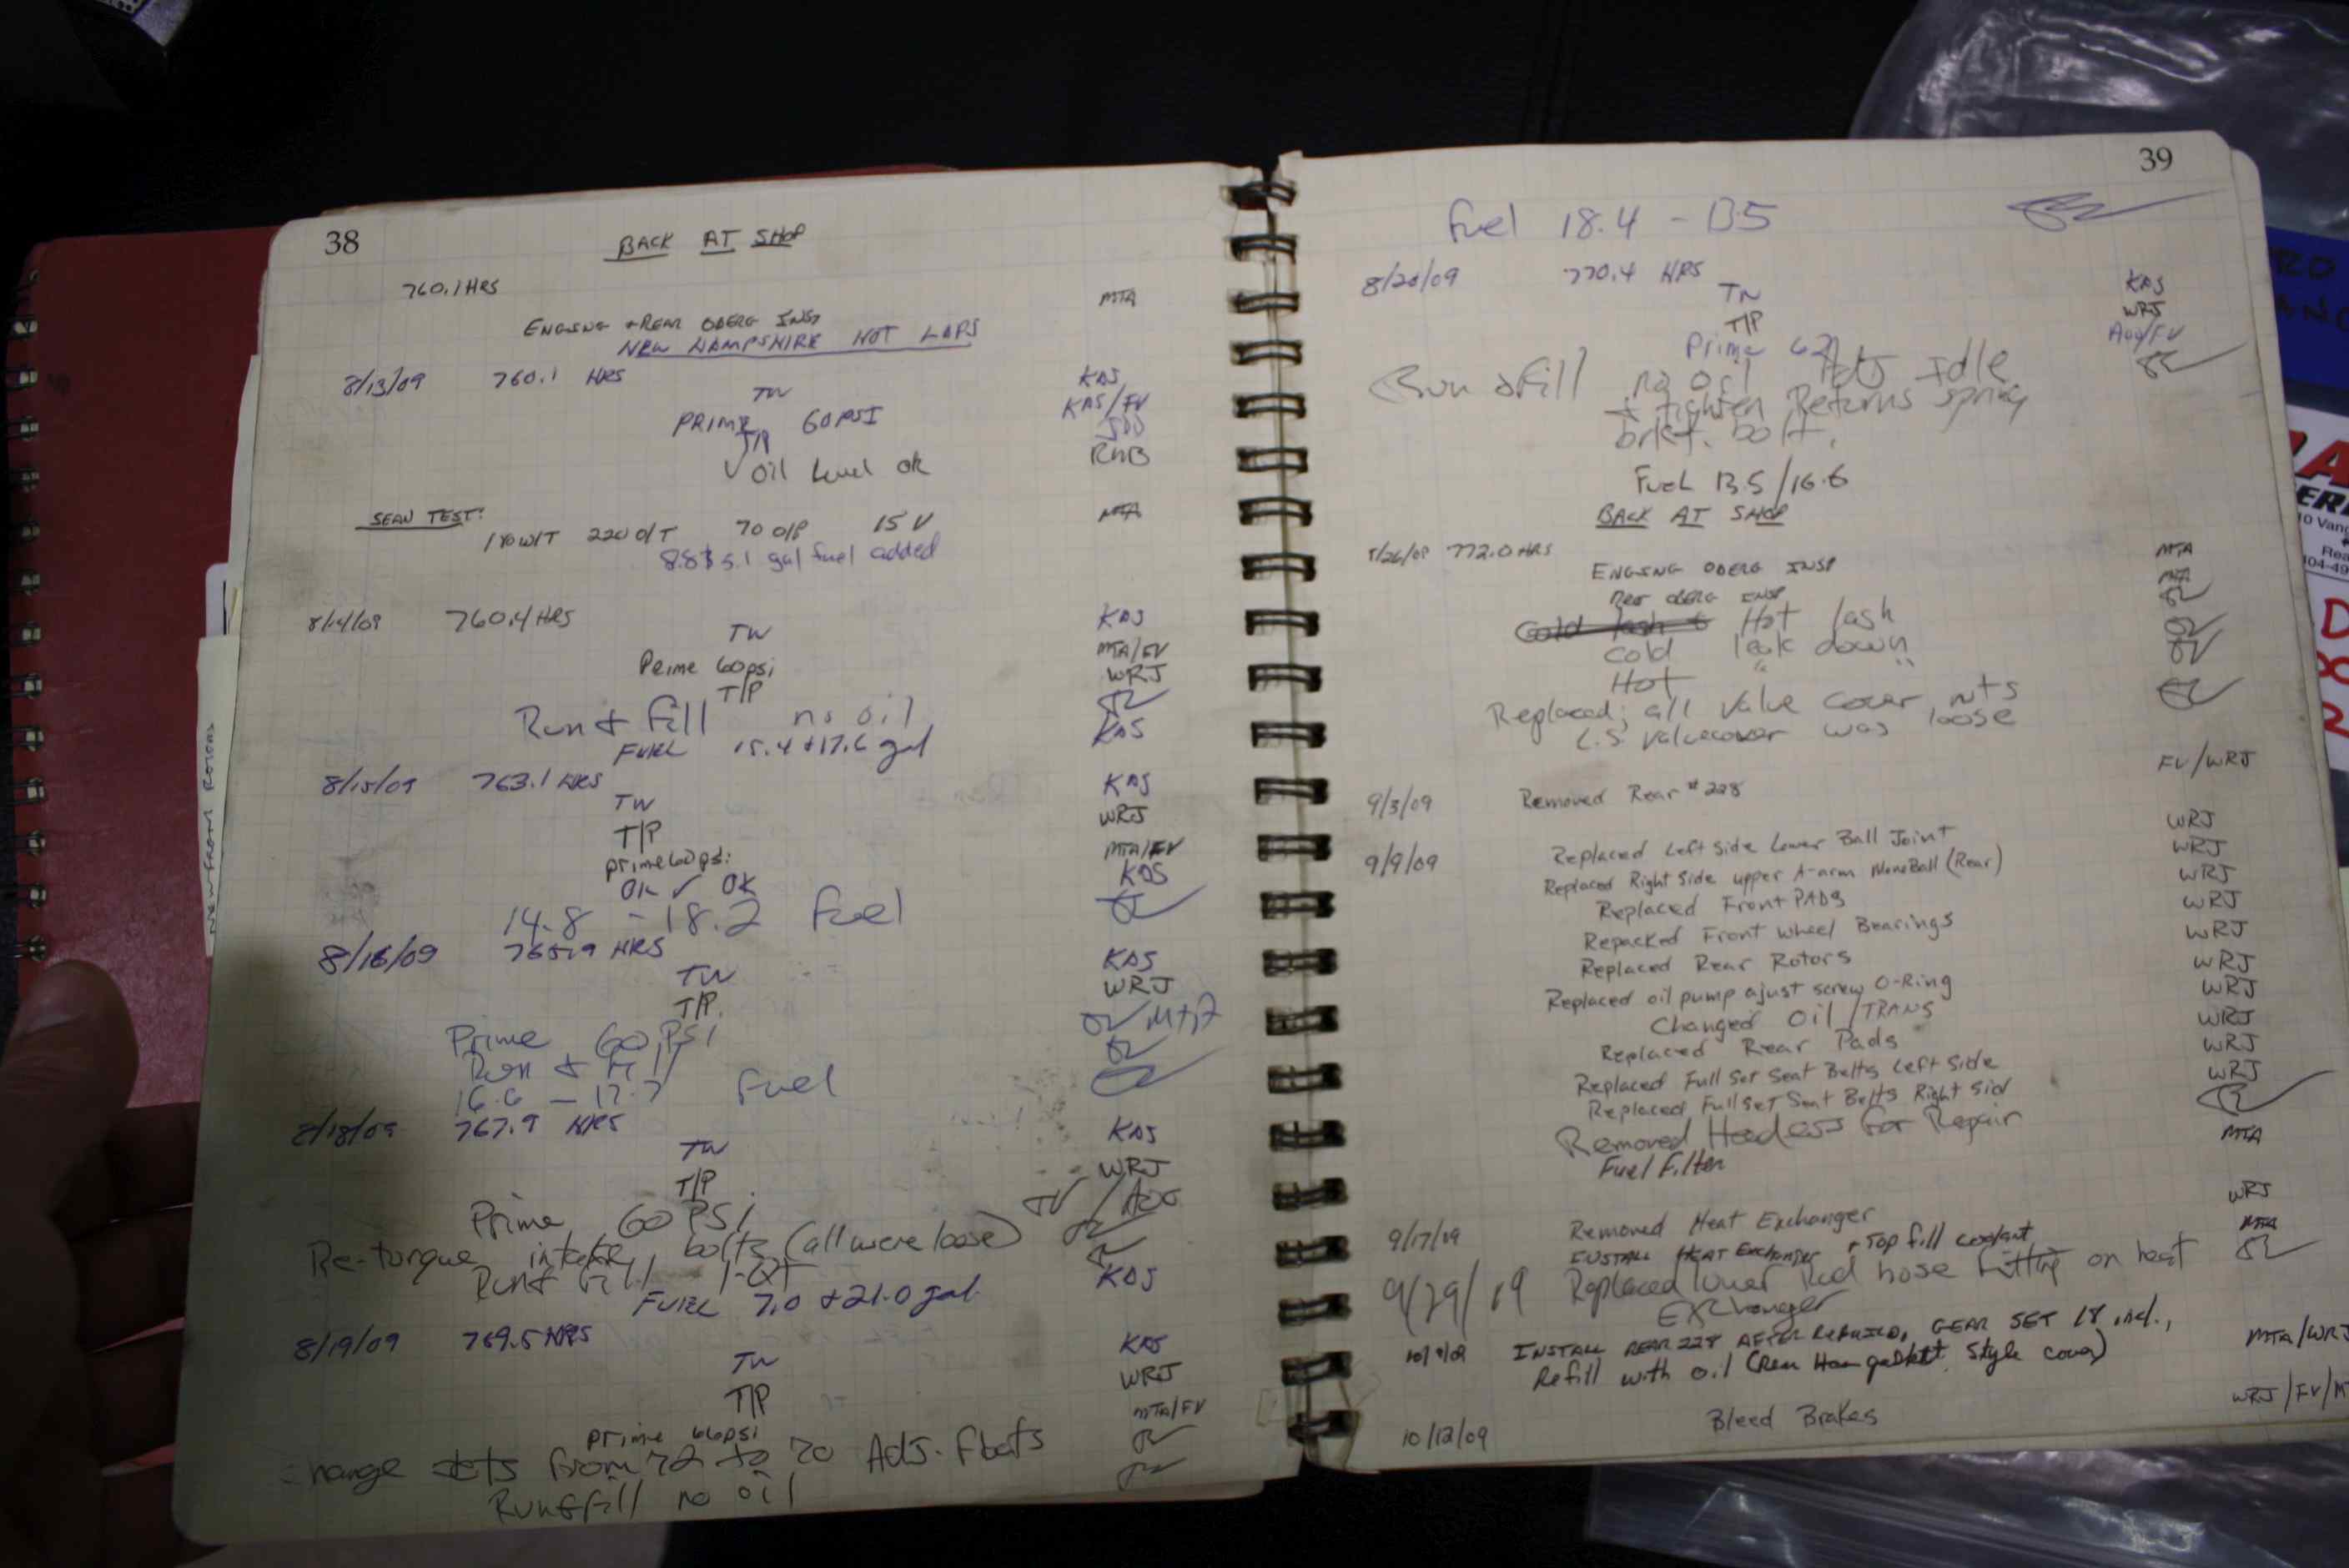 38
BACK AT SHOP
760.1 HRS MTA
ENGING + REAR OBERG INSP
NEW HAMPSHIRE HOT LAPS
8/13/09 760.1 HRS
TW KAS
PRIME 60 PSI KAS/FV
T/P JDD
✓ oil level ok RHB
SEAN TEST: 180 W/T 220 O/T 70 O/P 15 V MTA
8.8 & 5.1 gal fuel added
8/14/09 760.4 HRS
TW KAS
Prime 60psi MTA/FV
T/P WRJ
Run & fill no oil
FUEL 15.4 + 17.6 gal KAS
8/15/09 763.1 HRS
TW KAS
T/P WRJ
prime 60psi MTA/FV
OK ✓ OK KAS
14.8 - 18.2 fuel
8/16/09 765.9 HRS
TW KAS
T/P. WRJ
Prime 60 PSI MTA
Run & fill
16.6 - 17.7 fuel
8/18/09 767.9 HRS
TW KAS
T/P WRJ
Prime 60 PSI
Re-torque intake bolts (all were loose)
Run & fill 1-QT
FUEL 7.0 + 21.0 gal. KAS
8/19/09 769.5 HRS
TW KAS
T/P WRJ
prime 60psi MTA/FV
change jets from 72 to 70 Adj. floats
Run & fill no oil
NEW FROM ROUSH
39
fuel 18.4 - 13.5
8/20/09 770.4 HRS
TW KAS
T/P WRJ
Prime 62
Run & fill no oil Adj Idle
& tighten Returns spring
brkt. bolt.
Fuel 13.5/16.6
BACK AT SHOP
8/26/09 772.0 HRS
ENGING OBERG INSP MTA
OBERG INSP MTA
Cold lash & Hot lash
cold leak down
Hot " "
Replaced; all valve cover nuts
L.S. valvecover was loose
9/3/09 Removed Rear #228 FV/WRJ
9/9/09 Replaced Left Side Lower Ball Joint WRJ
Replaced Right Side upper A-arm MonoBall (Rear) WRJ
Replaced Front PADS WRJ
Repacked Front Wheel Bearings WRJ
Replaced Rear Rotors WRJ
Replaced oil pump ajust screw O-Ring WRJ
Changed Oil/TRANS WRJ
Replaced Rear Pads WRJ
Replaced Full Set Seat Belts Left Side WRJ
Replaced Full Set Seat Belts Right Sid WRJ
Removed Headers for Repair
Fuel Filter MTA
9/17/09 Removed Heat Exchanger WRJ
INSTALL HEAT Exchanger + Top fill coolant MTA
9/29/09 Replaced lower Rad hose fitting on heat
Exchanger
10/9/09 INSTALL REAR 228 AFTER REBUILD, GEAR SET MTA/WRJ
Refill with oil style cover)
10/12/09 Bleed Brakes WRJ/FV/M